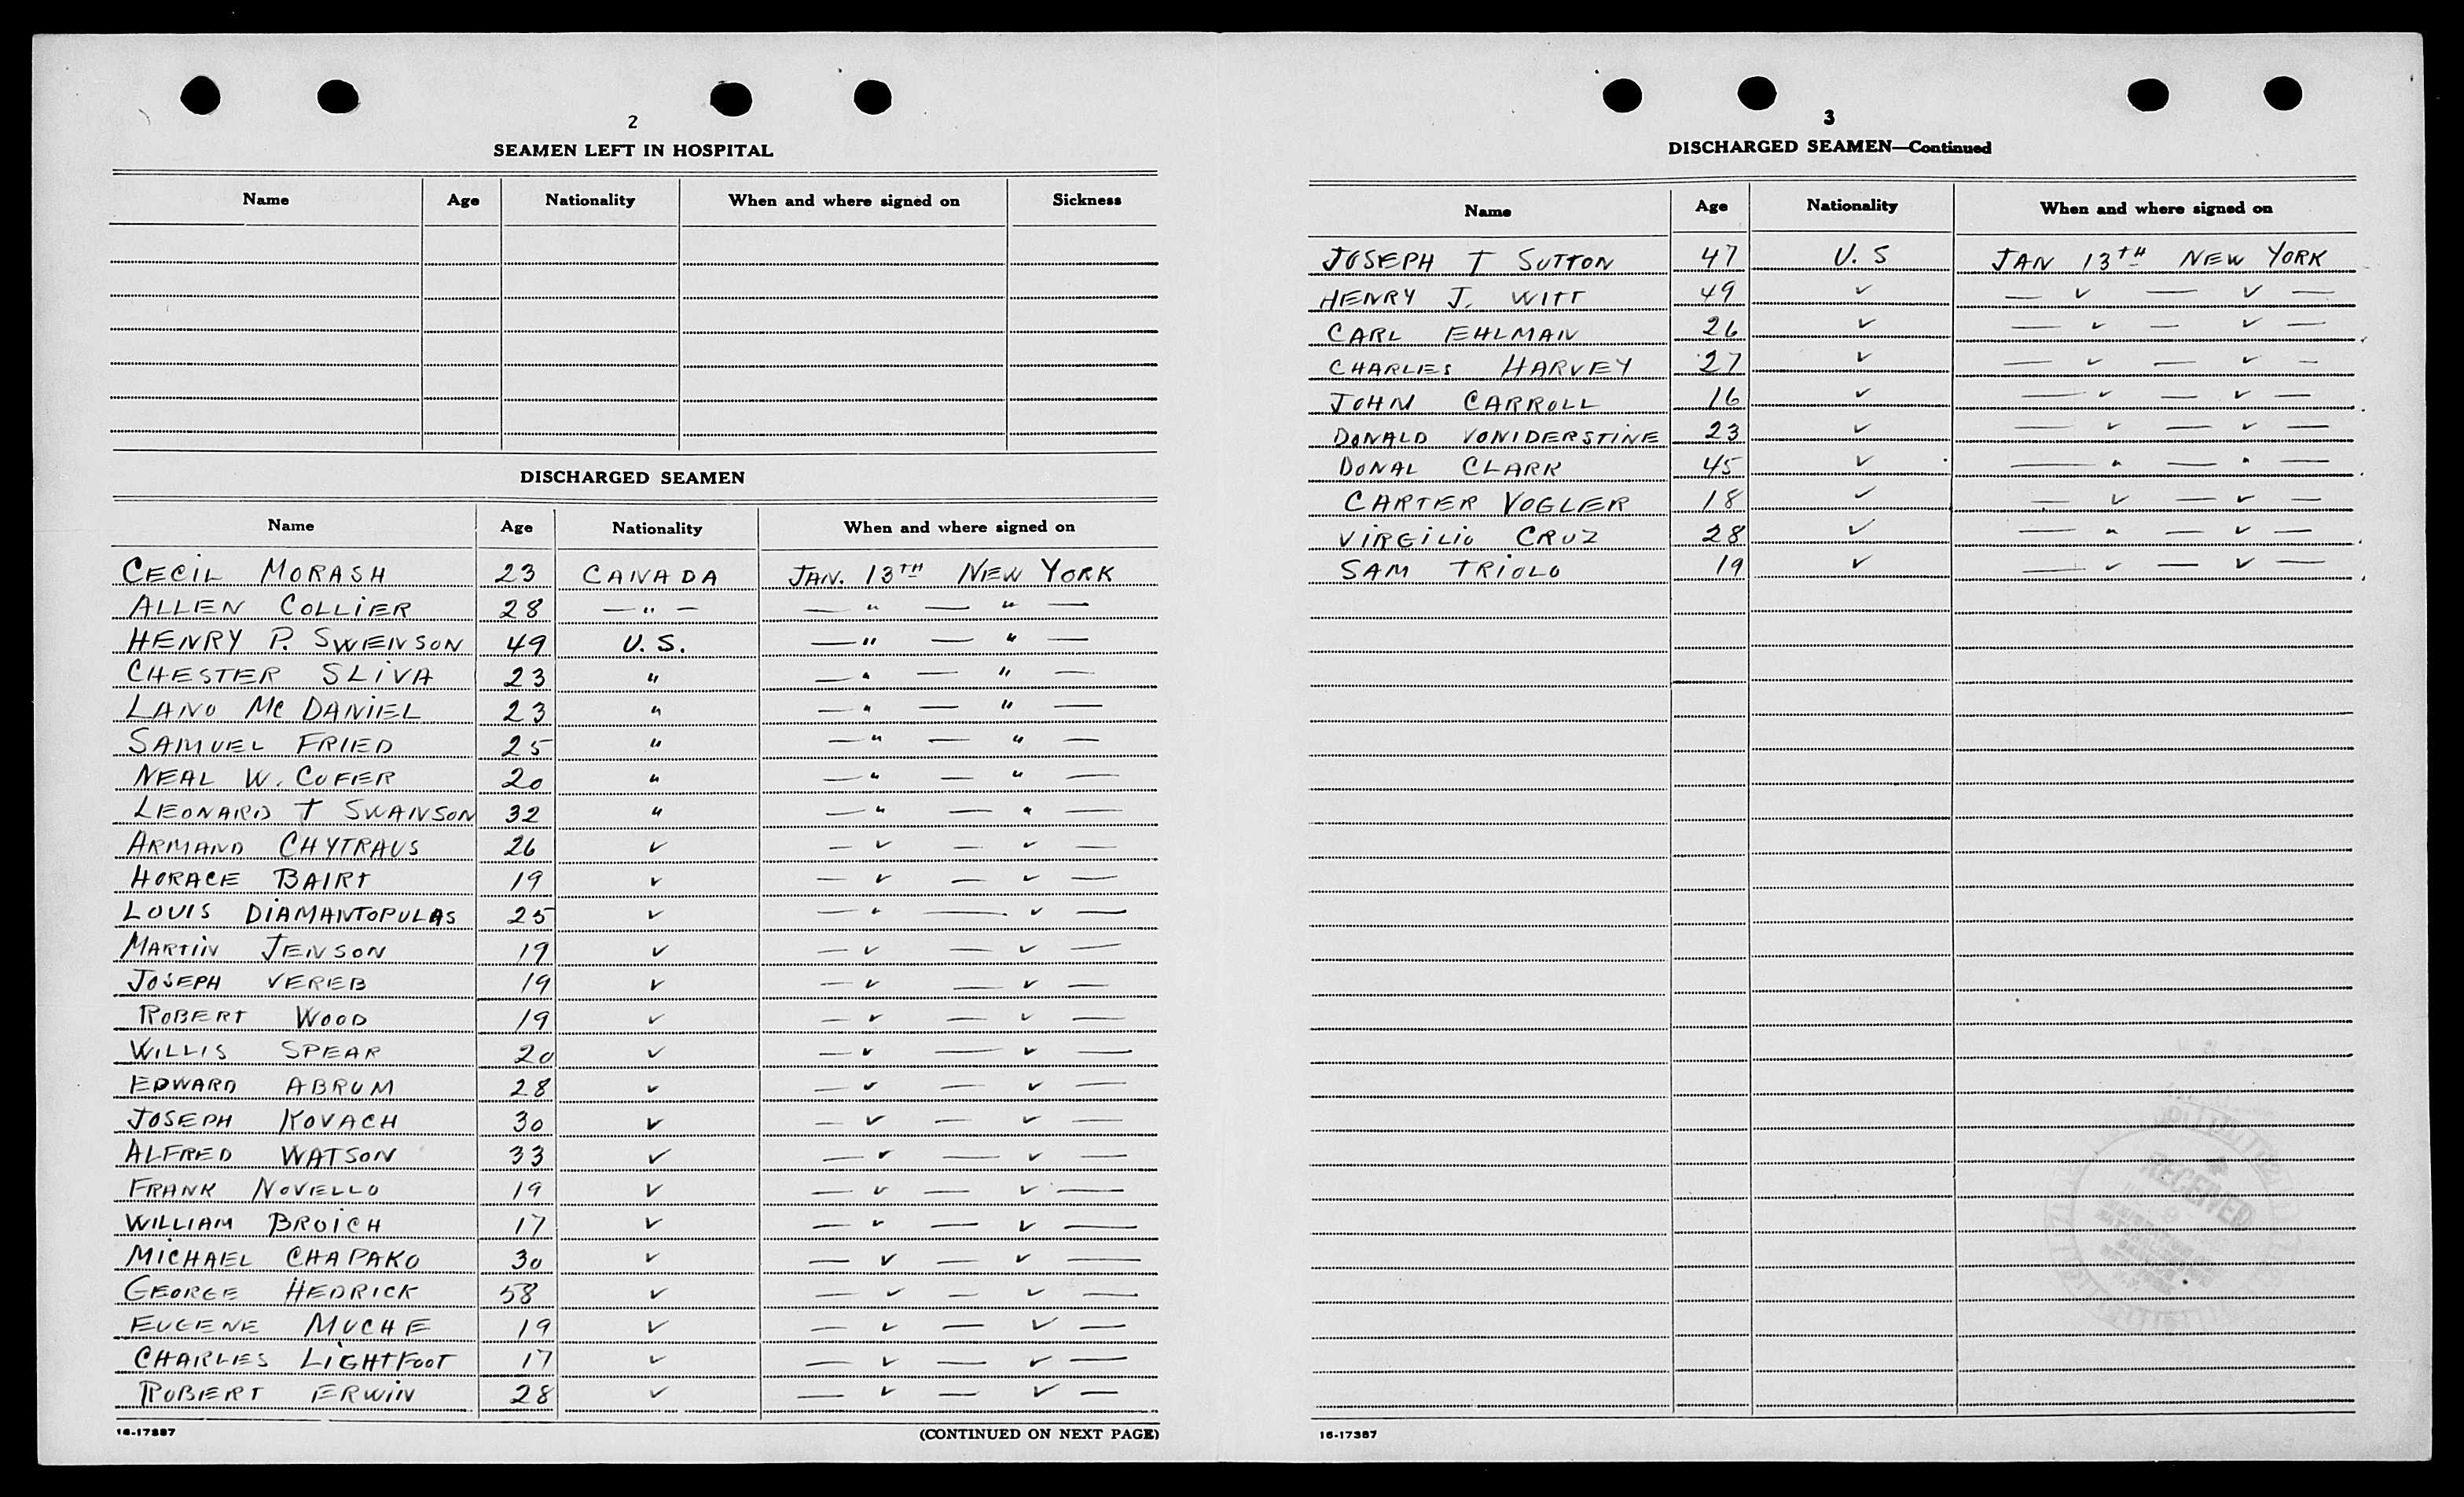 2
SEAMEN LEFT IN HOSPITAL
Name Age Nationality When and where signed on Sickness
DISCHARGED SEAMEN
Name Age Nationality When and where signed on
CECIL MORASH 23 CANADA JAN. 13TH NEW YORK
ALLEN COLLIER 28 — " — — " — " —
HENRY P. SWENSON 49 U.S. — " — " —
CHESTER SLIVA 23 " — " — " —
LANO McDANIEL 23 " — " — " —
SAMUEL FRIED 25 " — " — " —
NEAL W. COFER 20 " — " — " —
LEONARD T SWANSON 32 " — " — " —
ARMAND CHYTRAUS 26 ✓ — ✓ — ✓ —
HORACE BAIRT 19 ✓ — ✓ — ✓ —
LOUIS DIAMANTOPULAS 25 ✓ — ✓ — ✓ —
MARTIN JENSON 19 ✓ — ✓ — ✓ —
JOSEPH VEREB 19 ✓ — ✓ — ✓ —
ROBERT WOOD 19 ✓ — ✓ — ✓ —
WILLIS SPEAR 20 ✓ — ✓ — ✓ —
EDWARD ABRUM 28 ✓ — ✓ — ✓ —
JOSEPH KOVACH 30 ✓ — ✓ — ✓ —
ALFRED WATSON 33 ✓ — ✓ — ✓ —
FRANK NOVELLO 19 ✓ — ✓ — ✓ —
WILLIAM BROICH 17 ✓ — ✓ — ✓ —
MICHAEL CHAPAKO 30 ✓ — ✓ — ✓ —
GEORGE HEDRICK 58 ✓ — ✓ — ✓ —
EUGENE MUCHE 19 ✓ — ✓ — ✓ —
CHARLES LIGHTFOOT 17 ✓ — ✓ — ✓ —
ROBERT ERWIN 28 ✓ — ✓ — ✓ —
16-17387 (CONTINUED ON NEXT PAGE)
3
DISCHARGED SEAMEN—Continued
Name Age Nationality When and where signed on
JOSEPH T SUTTON 47 U.S JAN 13TH NEW YORK
HENRY J. WITT 49 ✓ — ✓ — ✓ —
CARL EHLMAN 26 ✓ — ✓ — ✓ —
CHARLES HARVEY 27 ✓ — ✓ — ✓ —
JOHN CARROLL 16 ✓ — ✓ — ✓ —
DONALD VONIDERSTINE 23 ✓ — ✓ — ✓ —
DONAL CLARK 45 ✓ — " — " —
CARTER VOGLER 18 ✓ — ✓ — ✓ —
VIRGILIO CRUZ 28 ✓ — " — ✓ —
SAM TRIOLO 19 ✓ — ✓ — ✓ —
RECEIVED
16-17387